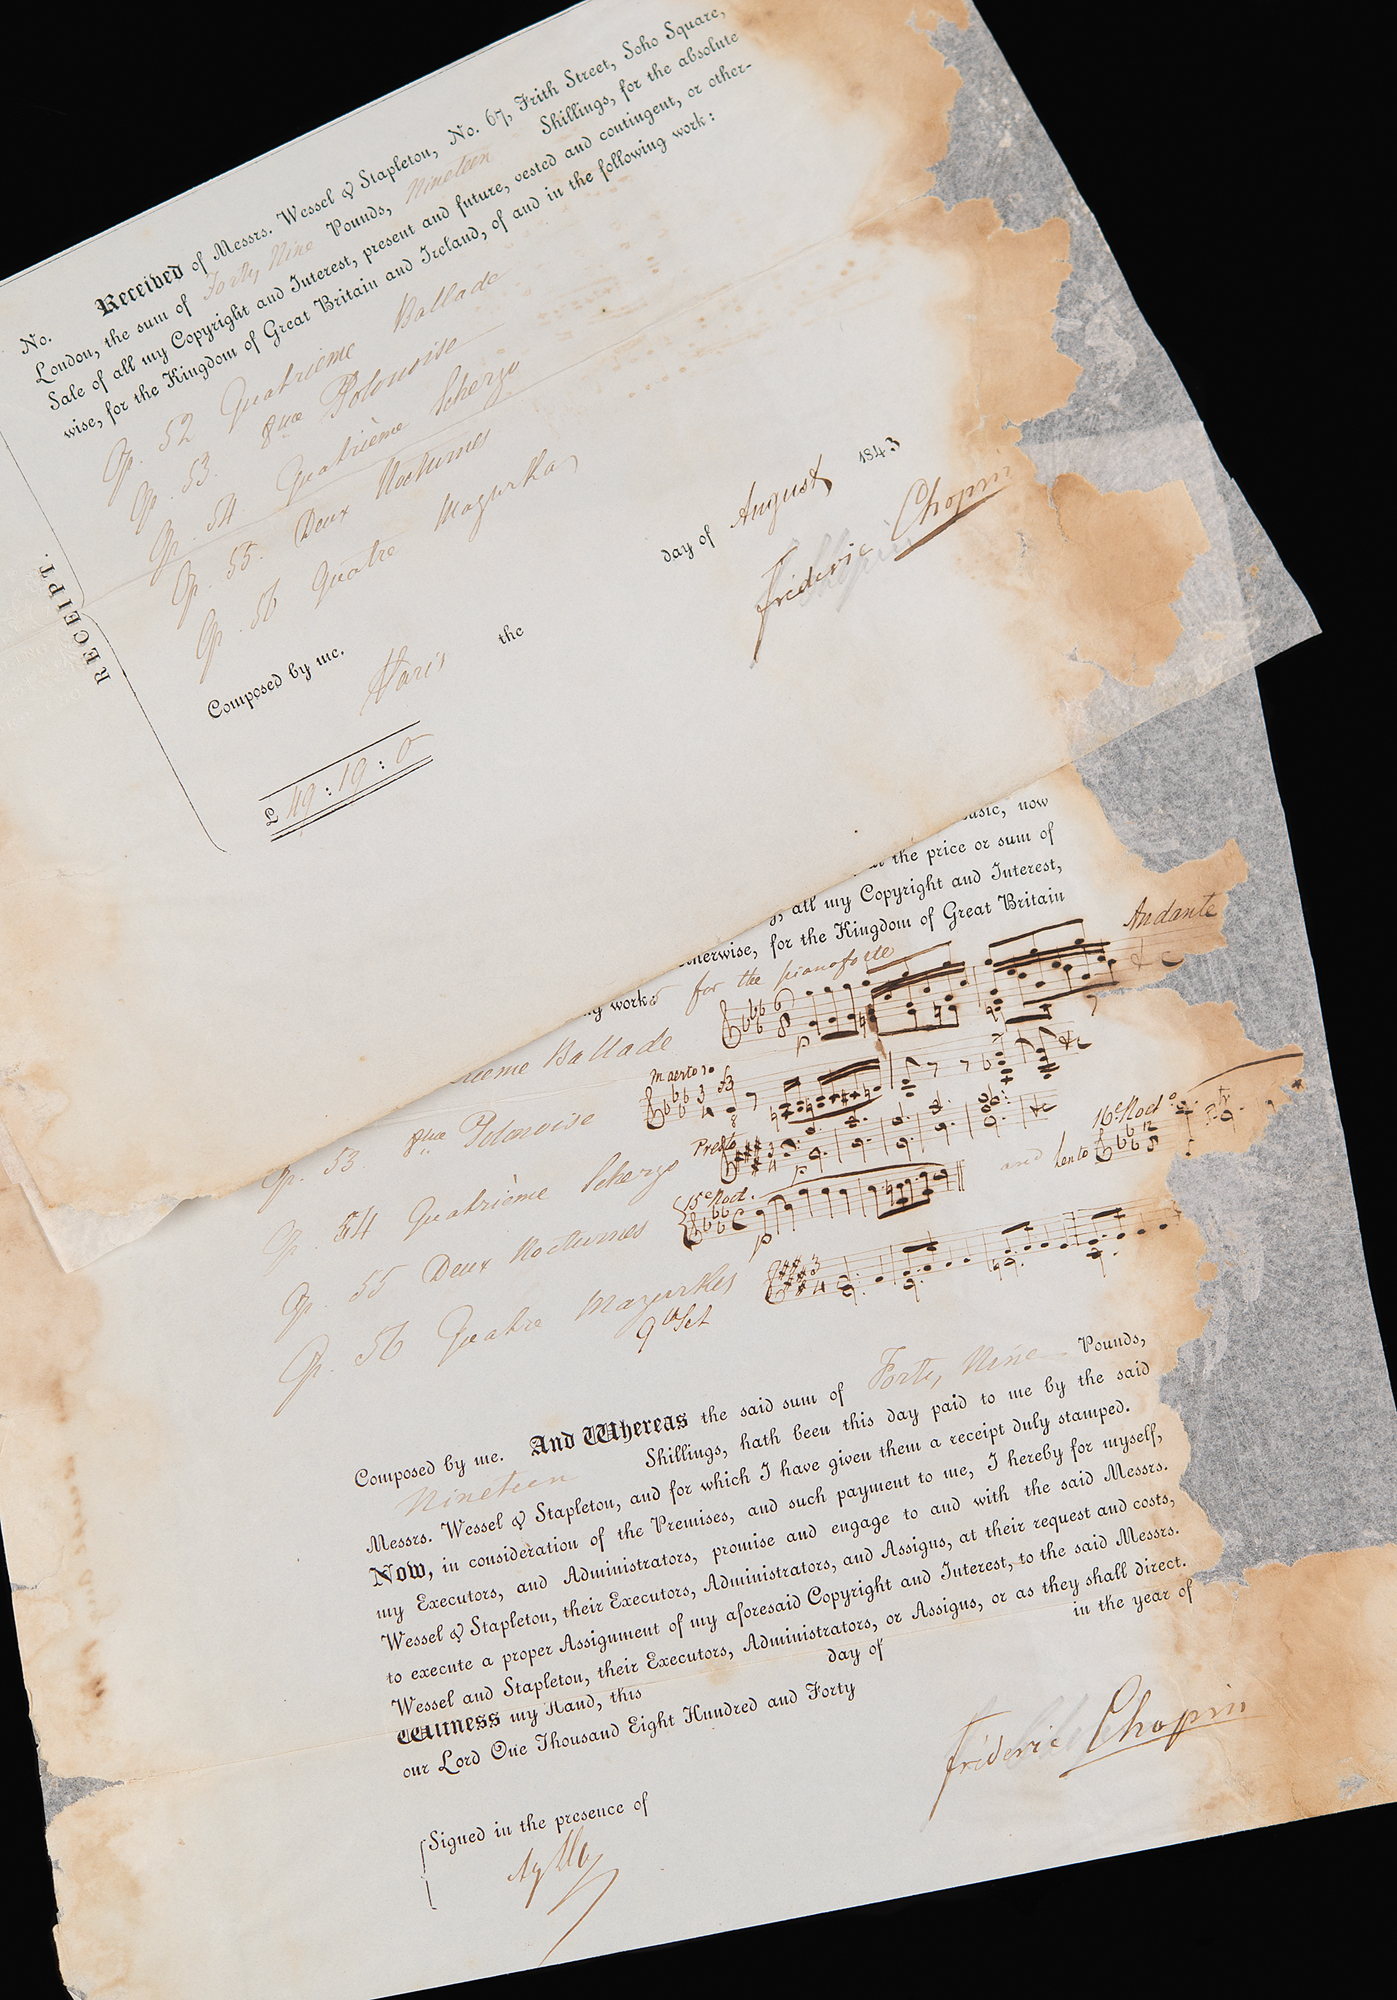 No. Received of Messrs. Wessel & Stapleton, No. 67, Frith Street, Soho Square,
London, the sum of Forty Nine Pounds, Nineteen Shillings, for the absolute
Sale of all my Copyright and Interest, present and future, vested and contingent, or other-
wise, for the Kingdom of Great Britain and Ireland, of and in the following work:
Op. 52 Quatrième Ballade
Op. 53. 8me Polonoise
Op. 54 Quatrième Scherzo
Op. 55. Deux Nocturnes
Op. 56 Quatre Mazurkas
RECEIPT.
Composed by me.
Paris the day of August 1843
Frédéric Chopin
£ 49 : 19 : 0
music, now
at the price or sum of
all my Copyright and Interest,
otherwise, for the Kingdom of Great Britain
works for the pianoforte
Andante
Ballade
Op. 53. 8me Polonoise Maestoso
Op. 54 Quatrième Scherzo Presto
Op. 55 Deux Nocturnes 15e Noct. and Lento 16e Noct
Op. 56 Quatre Mazurkas
9th Set
Composed by me. And Whereas the said sum of Forty Nine Pounds,
Nineteen Shillings, hath been this day paid to me by the said
Messrs. Wessel & Stapleton, and for which I have given them a receipt duly stamped.
Now, in consideration of the Premises, and such payment to me, I hereby for myself,
my Executors, and Administrators, promise and engage to and with the said Messrs.
Wessel & Stapleton, their Executors, Administrators, and Assigns, at their request and costs,
to execute a proper Assignment of my aforesaid Copyright and Interest, to the said Messrs.
Wessel and Stapleton, their Executors, Administrators, or Assigns, or as they shall direct.
Witness my Hand, this day of in the year of
our Lord One Thousand Eight Hundred and Forty
Frédéric Chopin
Signed in the presence of